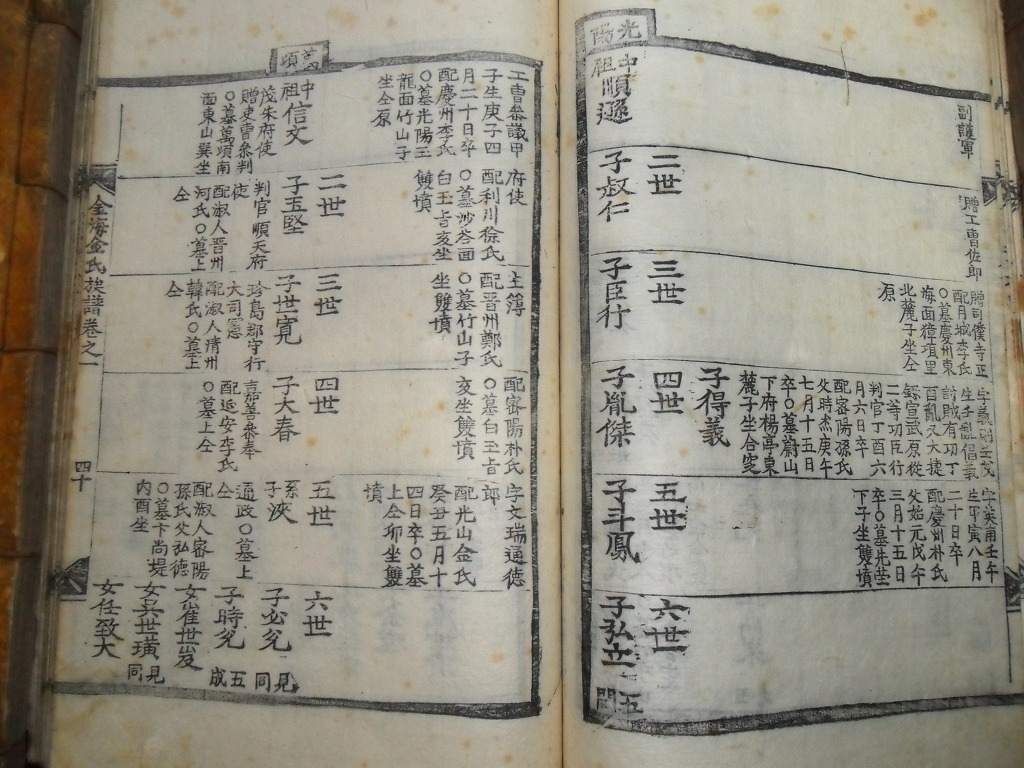 光陽
中祖順遜
二世
子叔仁
三世
子臣行
四世
子胤傑
子得義
五世
子斗鳳
六世
子弘立
副護軍
贈工曹佐郎
贈司僕寺正
配月城李氏
○墓慶州東
海面獐項里
北麓子坐仝
原
生壬亂倡義
討賊有功丁
酉亂又大捷
錄宣武原從
二等功臣行
判官丁酉六
月六日卒
配密陽孫氏
父時杰庚午
七月十五日
卒○墓蔚山
下府楊亭東
麓子坐合窆
字英甫壬午
生甲寅八月
二十日卒
配慶州朴氏
父始元戊午
三月十五日
卒○墓先塋
下子坐雙墳
工曹參議甲
子生庚子四
月二十日卒
配慶州李氏
○墓光陽玉
龍面竹山子
坐仝原
府使
配利川徐氏
○墓沙谷面
白玉旨亥坐
雙墳
主簿
配晋州鄭氏
○墓竹山子
坐雙墳
配密陽朴氏
○墓白玉旨
亥坐雙墳
字文瑞通德
郎
配光山金氏
癸丑五月十
四日卒○墓
上仝卯坐雙
墳
中祖信文
茂朱府使
贈吏曹參判
○墓萬頃南
面東山巽坐
二世
子玉堅
判官順天府
使
配淑人晋州
河氏○墓上
仝
三世
子世寬
珍島郡守行
大司憲
配淑人清州
韓氏○墓上
仝
四世
子大春
嘉善參奉
配延安李氏
○墓上仝
五世
系子浹
通政○墓上
仝
配淑人密陽
孫氏父弘德
○墓卞尚堤
内酉坐
六世
子必兊 見同
子時兊 五成
女崔世岌
女吳世璜 見同
女任致大
金海金氏族譜卷之一
四十